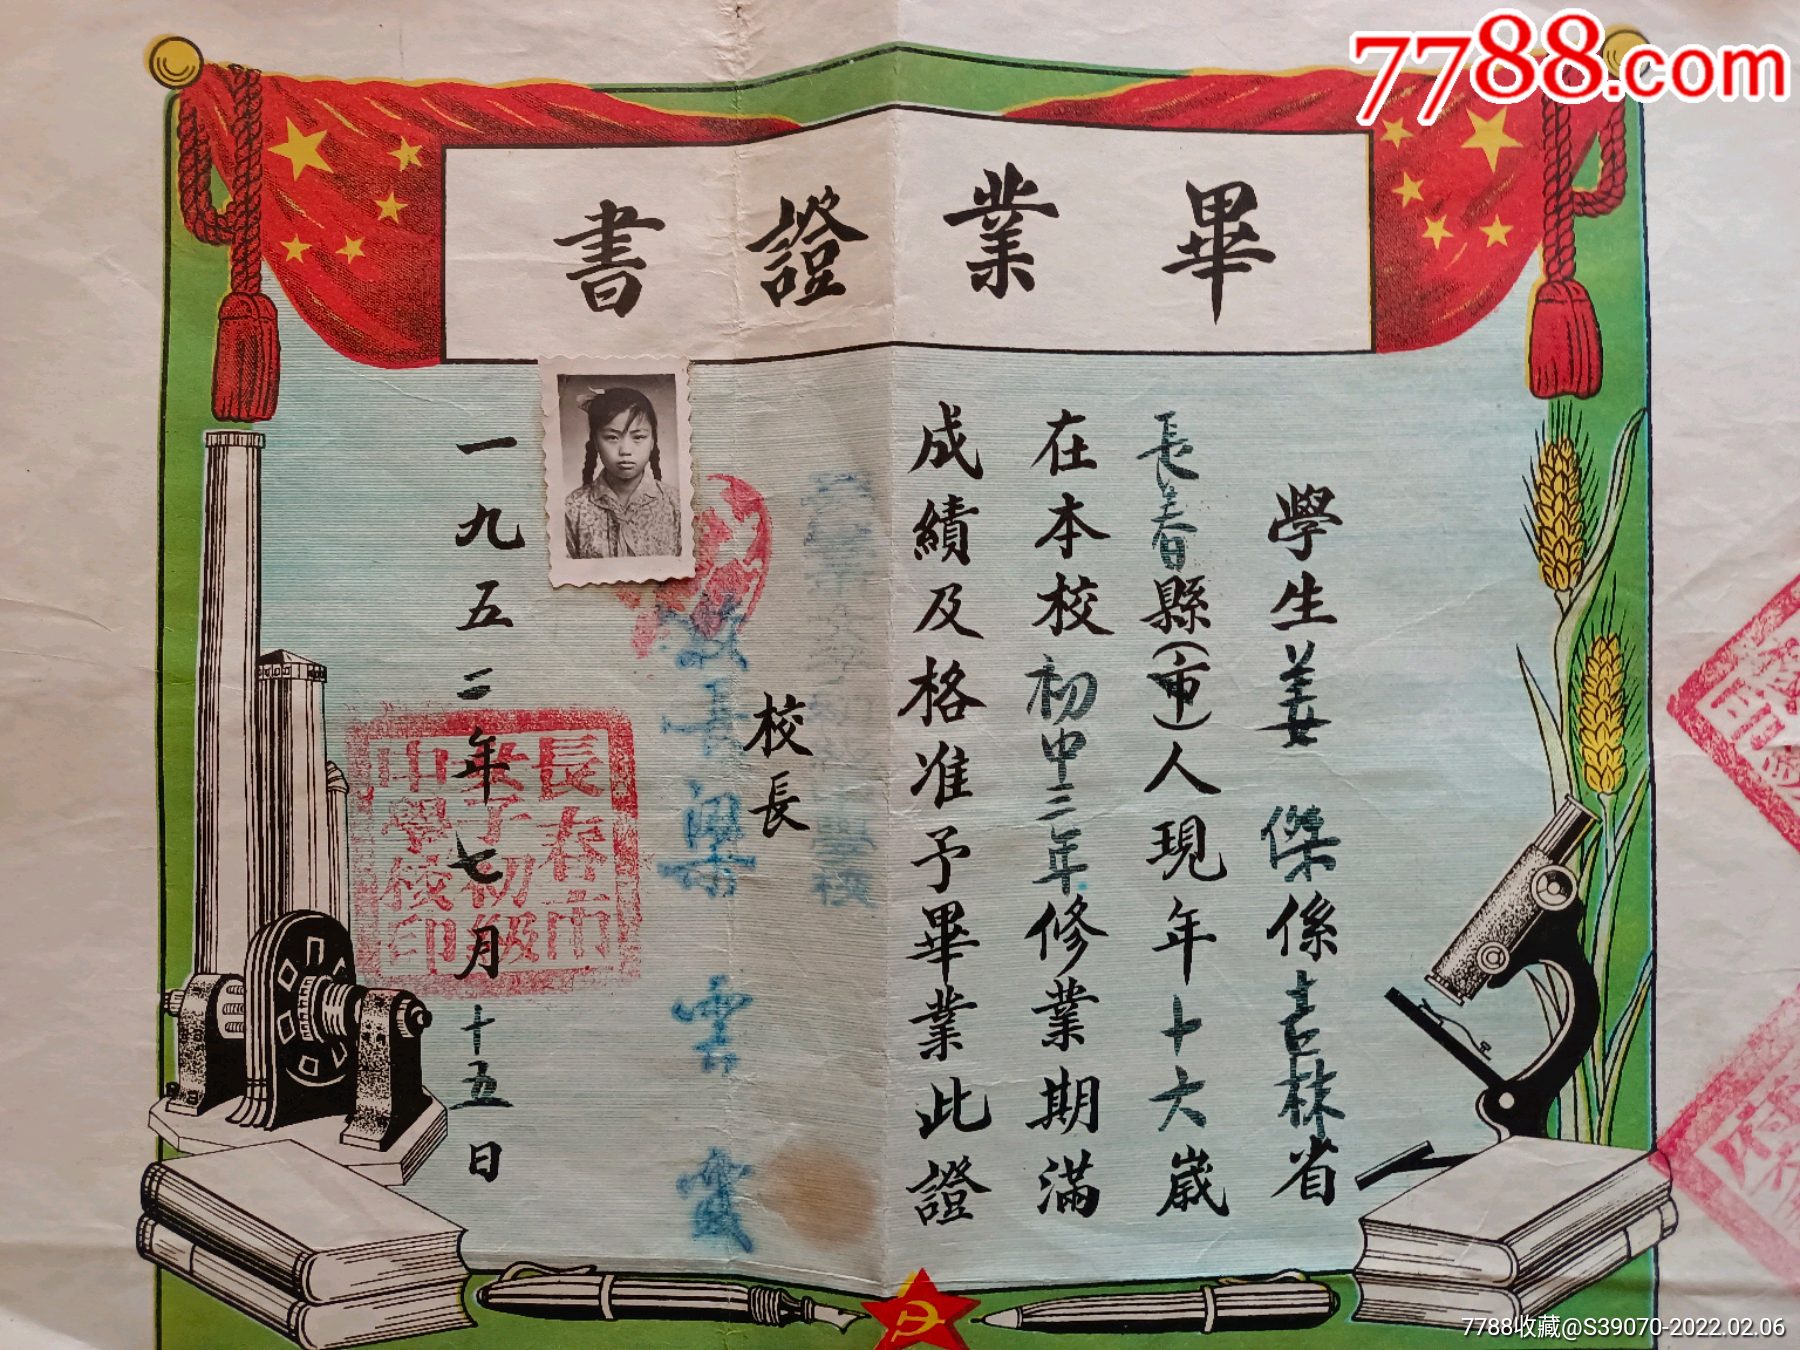 7788.com
畢業證書
學生姜傑係吉林省
長春縣(市)人現年十六歲
在本校初中三年修業期滿
成績及格准予畢業此證
校長
校長梁雲霞
一九五二年七月十五日
長春市
女子初級
中學校印
7788收藏@S39070-2022.02.06